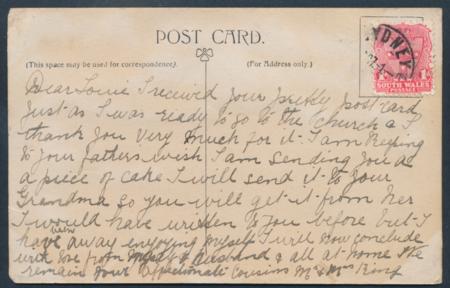 POST CARD.
(This space may be used for correspondence).
(For Address only.)
SYDNEY
SOUTH WALES
POSTAGE
Dear Louie I received your pretty post card
just as I was ready to go to the church & I
thank you very much for it. I am keeping
to your fathers wish I am sending you as
a piece of cake I will send it to your
Grandma so you will get it from her
I would have written to you before but I
have been away enjoying myself I will now conclude
with love from myself & Husband & all at home I
remain your affectionate cousins Mr & Mrs King